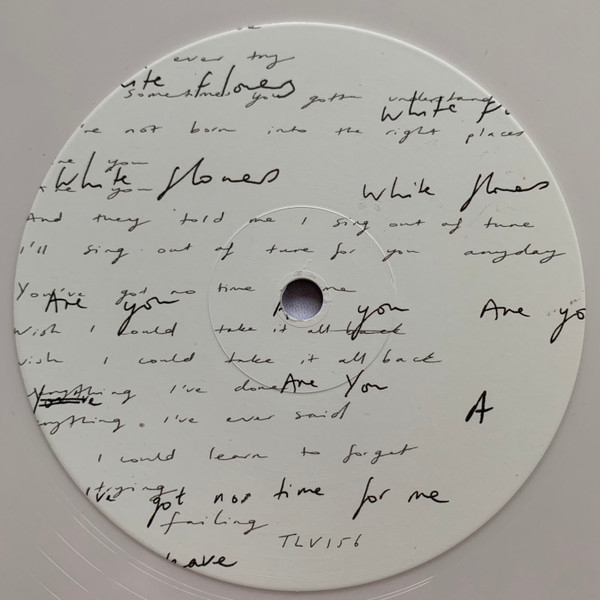 ever try
ite flowers
sometimes you gotta understand
White fl
're not born into the right places
you
White flowers
White flowers
the you
And they told me I sing out of tune
I'll sing out of tune for you anyday
You've got no time me
Are you A you Are yo
wish I could take it all back
wish I could take it all back
anything I've done Are You
You've
A
anything I've ever said
I could learn to forget
trying
I've got nos time for me
failing
TLV156
have